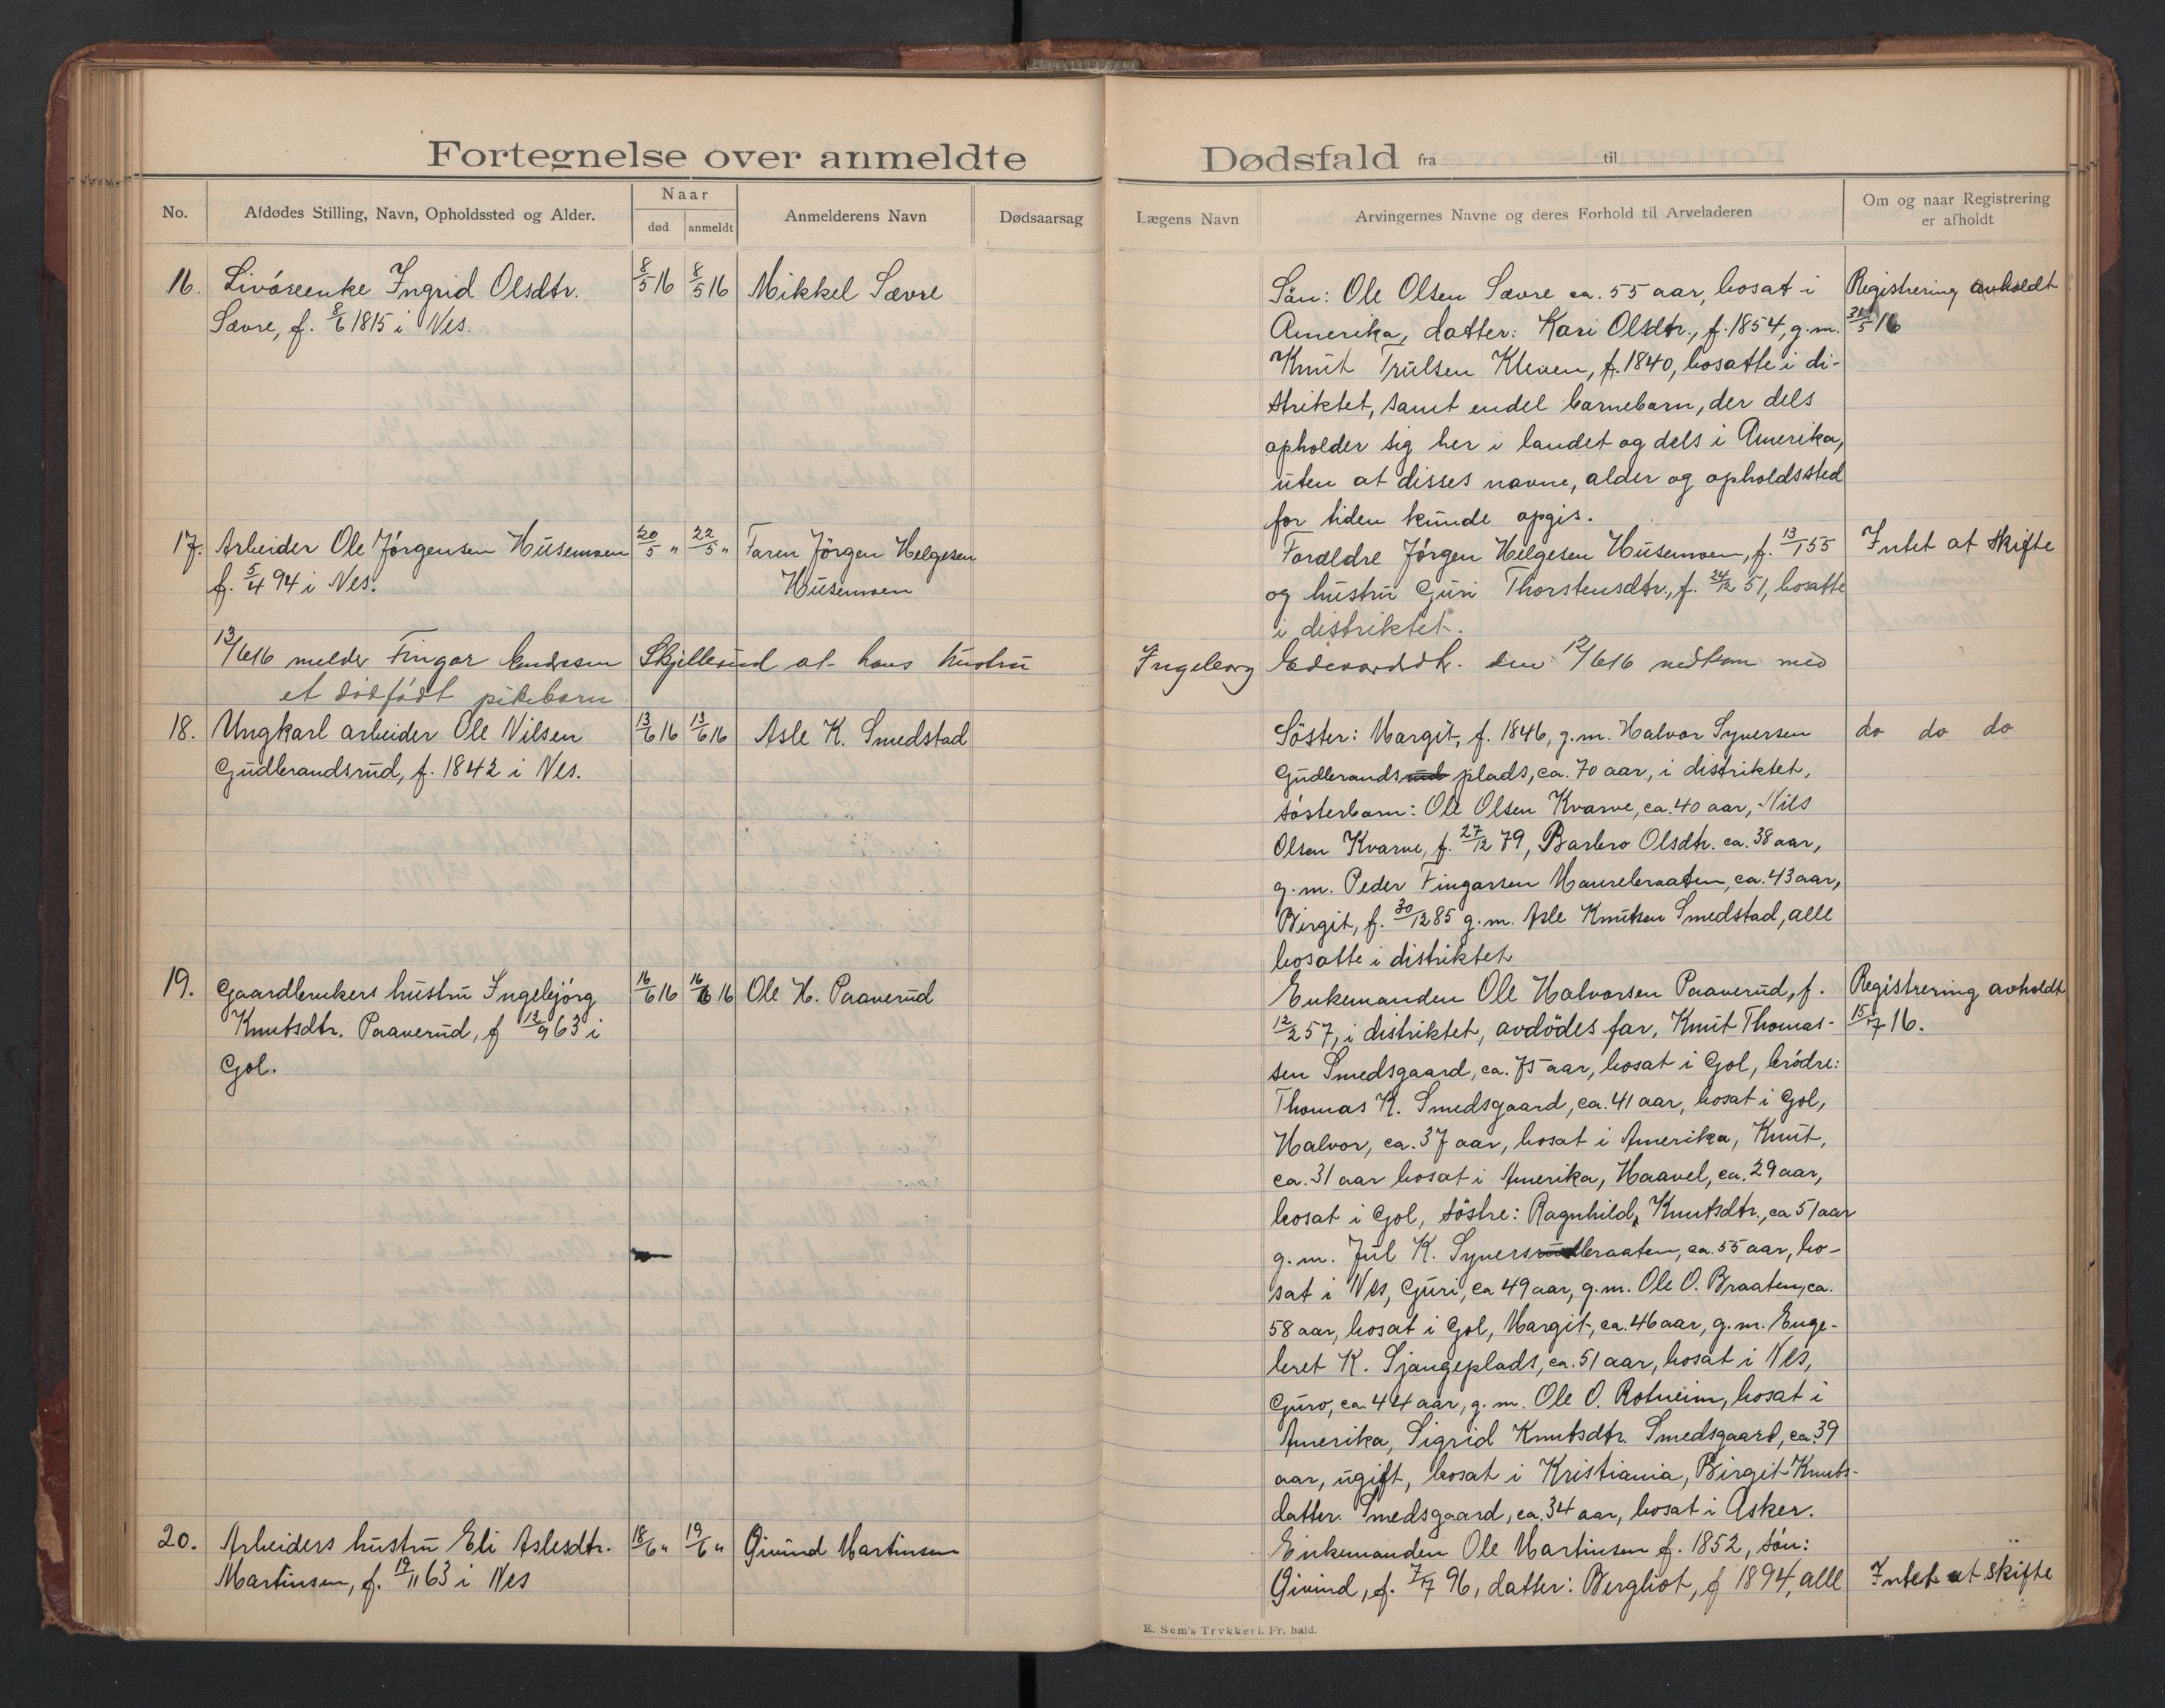 Fortegnelse over anmeldte Dødsfald fra til
No.
Afdødes Stilling, Navn, Opholdssted og Alder.
Naar
død anmeldt
Anmelderens Navn
Dødsaarsag
Lægens Navn
Arvingernes Navne og deres Forhold til Arveladeren
Om og naar Registrering
er afholdt
16. Livöreenke Ingrid Olsdtr.
Sævre, f. 8/6 1815 i Nes.
8/5 16 8/5 16 Mikkel Sævre
Sön: Ole Olsen Sævre ca. 55 aar, bosat i
Amerika, datter: Kari Olsdtr., f. 1854, g.m.
Knut Trulsen Kleven, f. 1840, bosatte i di-
striktet, samt endel barnebarn, der dels
opholder sig her i landet og dels i Amerika,
uten at disses navne, alder og opholdssted
for tiden kunde opgis.
Registrering avholdt
31/5 16
17. Arbeider Ole Jörgensen Husemoen
f. 5/4 94 i Nes.
20/5 " 22/5 " Faren Jörgen Helgesen
Husemoen
Forældre Jörgen Helgesen Husemoen, f. 13/1 55
og hustru Guri Thorstensdtr., f. 24/12 51, bosatte
i distriktet.
Intet at skifte
13/6 16 melder Fingar Endresen Skjellerud at hans hustru Ingeborg Edvardsdt. den 12/6 16 nedkom med
et dödfödt pikebarn
18. Ungkarl arbeider Ole Nilsen
Gudbrandsrud, f. 1842 i Nes.
13/6 16 13/6 16 Asle K. Smedstad
Söster: Margit, f. 1846, g.m. Halvor Syversen
Gudbrandsrud plads, ca. 70 aar, i distriktet,
sösterbarn: Ole Olsen Kvarve, ca. 40 aar, Nils
Olsen Kvarve, f. 27/12 79, Barbro Olsdtr. ca. 38 aar,
g.m. Peder Fingarsen Haurebraaten, ca. 43 aar,
Birgit, f. 30/12 85 g.m. Asle Knutsen Smedstad, alle
bosatte i distriktet
do do do
19. Gaardbrukers hustru Ingebjörg
Knutsdtr. Paaverud, f 12/9 63 i
Gol.
16/6 16 16/6 16 Ole H. Paaverud
Enkemanden Ole Halvorsen Paaverud, f.
12/2 57, i distriktet, avdödes far, Knut Thomas-
sen Smedsgaard, ca. 75 aar, bosat i Gol, brödre:
Thomas K. Smedsgaard, ca. 41 aar, bosat i Gol,
Halvor, ca. 37 aar, bosat i Amerika, Knut,
ca. 31 aar bosat i Amerika, Haavel, ca. 29 aar,
bosat i Gol, söstre: Ragnhild Knutsdtr., ca 51 aar
g.m. Jul K. Syversrudbraaten, ca. 55 aar, bo-
sat i Nes, Guri, ca 49 aar, g.m. Ole O. Braaten, ca.
58 aar, bosat i Gol, Margit, ca. 46 aar, g.m. Enge-
bret K. Sjangeplads, ca. 51 aar, bosat i Nes,
Guro, ca. 44 aar, g.m. Ole O. Rotneim, bosat i
Amerika, Sigrid Knutsdtr. Smedsgaard, ca. 39
aar, ugift, bosat i Kristiania, Birgit Knuts-
datter. Smedsgaard, ca. 34 aar, bosat i Asker.
Registrering avholdt
15/7 16.
20. Arbeiders hustru Eli Aslesdtr.
Martinsen, f. 19/11 63 i Nes
18/6 " 19/6 " Øivind Martinsen
Enkemanden Ole Martinsen f. 1852, sön:
Øivind, f. 7/7 96, datter: Bergliot, f 1894, alle
Intet at skifte
E. Sem's Trykkeri, Fr. hald.